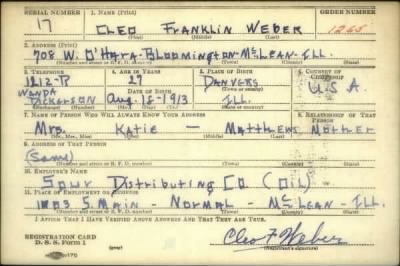 SERIAL NUMBER 1. NAME (Print) ORDER NUMBER
17 CLEO FRANKLIN WEBER 1265
(First) (Middle) (Last)
2. ADDRESS (Print)
708 W. O'Hara-Bloomington-McLean-Ill.
(Number and street or R. F. D. number) (Town) (County) (State)
3. TELEPHONE 4. AGE IN YEARS 5. PLACE OF BIRTH 6. COUNTRY OF CITIZENSHIP
1212-P 27 DANVERS
Wanda DATE OF BIRTH (Town or county) U.S.A.
Dickerson Aug. 18-1913 Ill.
(Exchange) (Number) (Mo.) (Day) (Yr.) (State or country)
7. NAME OF PERSON WHO WILL ALWAYS KNOW YOUR ADDRESS 8. RELATIONSHIP OF THAT PERSON
Mrs. Katie - Matthews Mother
(Mr., Mrs., Miss) (First) (Middle) (Last)
9. ADDRESS OF THAT PERSON
(Same)
(Number and street or R. F. D. number) (Town) (County) (State)
10. EMPLOYER'S NAME
Distributing Co (Oil)
11. PLACE OF EMPLOYMENT OR BUSINESS
1803 S. Main - Normal - McLean - Ill.
(Number and street or R. F. D. number) (Town) (County) (State)
I AFFIRM THAT I HAVE VERIFIED ABOVE ANSWERS AND THAT THEY ARE TRUE.
REGISTRATION CARD
D. S. S. Form 1 Cleo F Weber
(Registrant's signature)